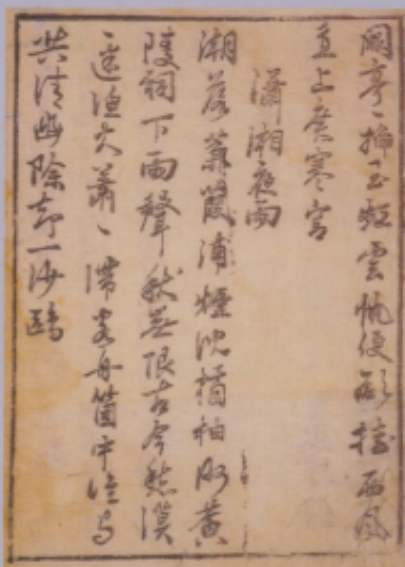 闕亭ヽ揷玉虹雲帆便欲掛西風
直上廣寒宮
瀟湘夜雨
潮落蒹葭浦煙沈橘柚洲黃
陵祠下雨聲秋無限古今愁漠
ヽ迷漁火蕭ヽ滯客舟箇中誰与
共清幽除却一沙鷗